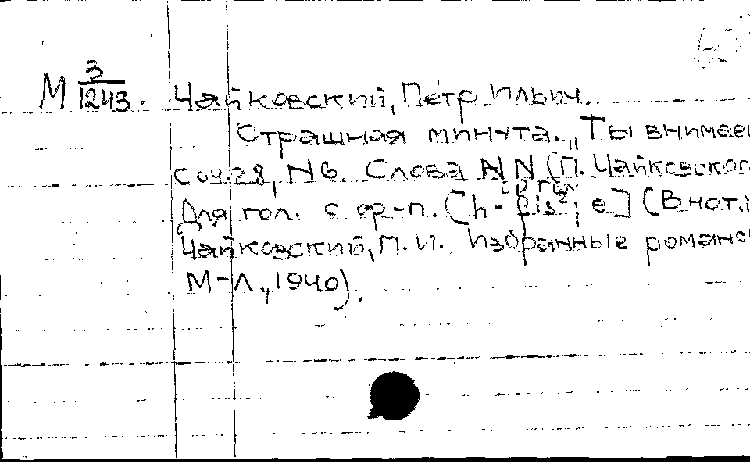 М 3/1243. Чайковский, Петр Ильич.
Страшная минута. „Ты внимае
соч. 28, N6. Слова NN (П. Чайковского
Для гол. с фр-п. [h-fis²; e] (В нот.:
Чайковский, П. И. Избранные романс
М-Л., 1940).